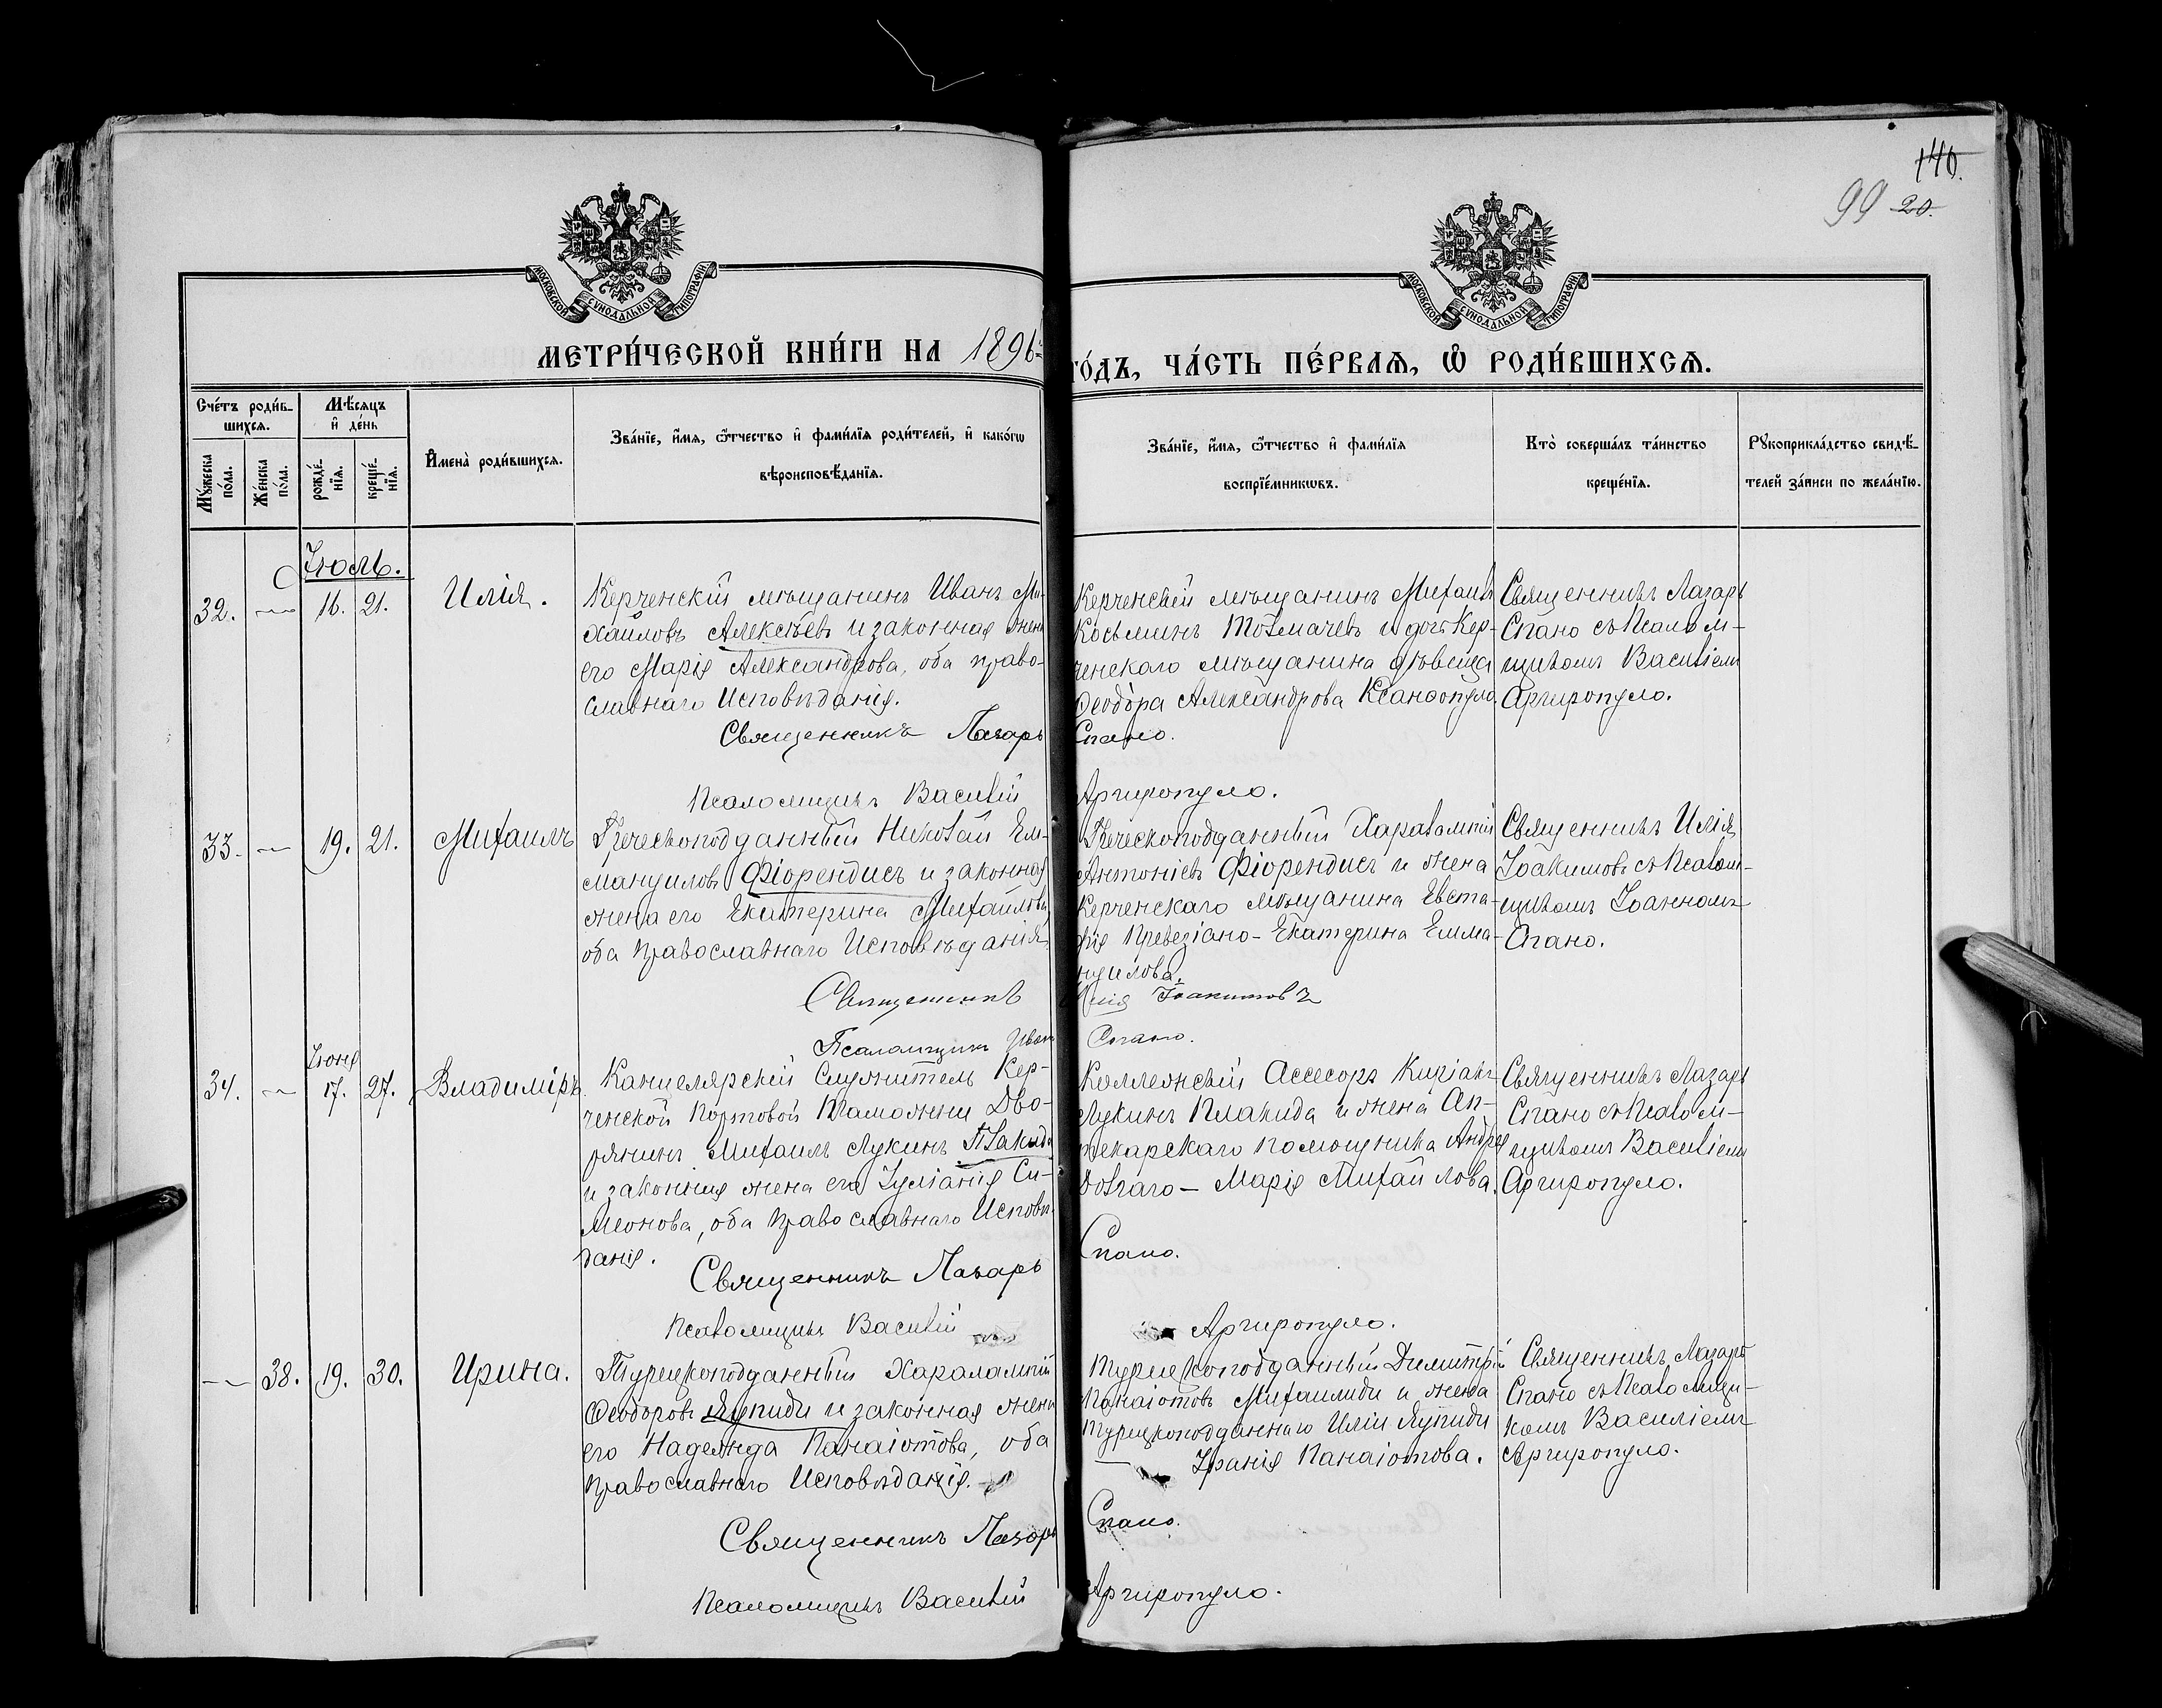 140.
99 20.
МОСКОВСКОЙ СѴНОДАЛЬНОЙ ТИПОГРАФІИ
МОСКОВСКОЙ СѴНОДАЛЬНОЙ ТИПОГРАФІИ
МЕТРИ́ЧЕСКОЙ КНИ́ГИ НА 1896
ГО́ДЪ, ЧА́СТЬ ПЕ́РВАѦ, Ѽ РОДИ́ВШИХСѦ.
Сче́тъ роди́в-
шихсѧ.
Мꙋ́жеска
по́ла.
Же́нска
по́ла.
Мѣ́сѧцъ
и҆ де́нь
рожде́-
нїѧ.
креще́-
нїѧ.
И҆мена̀ роди́вшихсѧ.
Зва́нїе, и҆́мѧ, ѻ҆́тчество и҆ фами́лїѧ роди́телей, и҆ како́гѡ
вѣроисповѣ́данїѧ.
Зва́нїе, и҆́мѧ, ѻ҆́тчество и҆ фами́лїѧ
воспрїе́мникѡвъ.
Кто̀ соверша́лъ та́инство
креще́нїѧ.
Рꙋкоприкла́дство свидѣ́-
телей за́писи по жела́нїю.
Іюль.
32. — 16. 21. Илія.
Керченскій мѣщанинъ Иванъ Ми-
хайловъ Алексѣевъ и законная жена
его Марія Александрова, оба право-
славнаго Исповѣданія.
Священникъ Лазарь
Псаломщикъ Василій
Керченскій мѣщанинъ Михаилъ
Косьминъ Толмачевъ и дочь Кер-
ченскаго мѣщанина дѣвица
Ѳеодора Александрова Ксанѳопуло.
Спано.
Аргиропуло.
Священникъ Лазарь
Спано съ Псалом-
щикомъ Василіемъ
Аргиропуло.
33. — 19. 21. Михаилъ
Греческоподданный Николай Ем-
мануиловъ Фіорендисъ и законная
жена его Екатерина Михайлова
оба Православнаго Исповѣданія
Священникъ
Псаломщикъ Иван
Греческоподданный Харалампій
Антоніевъ Фіорендисъ и жена
Керченскаго мѣщанина Евста-
фія Превезіано - Екатерина Емма-
нуилова.
Илія Іоакимовъ
Спано.
Священникъ Илія
Іоакимовъ съ Псалом-
щикомъ Іоанномъ
Спано.
Іюня
34. — 17. 27. Владиміръ
Канцелярскій Служитель Кер-
ченской Портовой Таможни Дво-
рянинъ Михаилъ Лукинъ Плакида
и законная жена его Іуліанія Си-
меонова, оба православнаго Исповѣ-
данія.
Священникъ Лазарь
Псаломщикъ Василій
Коллежскій Ассесоръ Кипріанъ
Лукинъ Плакида и жена Ап-
текарскаго помощника Андрея
Долгаго - Марія Михайлова.
Спано.
Аргиропуло.
Священникъ Лазарь
Спано съ Псалом-
щикомъ Василіемъ
Аргиропуло.
— 38. 19. 30. Ирина.
Турецкоподданный Харалампій
Ѳеодоровъ Япиди и законная жена
его Надежда Панаіотова, оба
православнаго Исповѣданія.
Священникъ Лазарь
Псаломщикъ Василій
Турецкоподданный Димитрій
Панаіотовъ Михаилиди и жена
Турецкоподданнаго Иліи Япиди
— Ѳранія Панаіотова.
Спано.
Аргиропуло.
Священникъ Лазарь
Спано съ Псаломщи-
комъ Василіемъ
Аргиропуло.